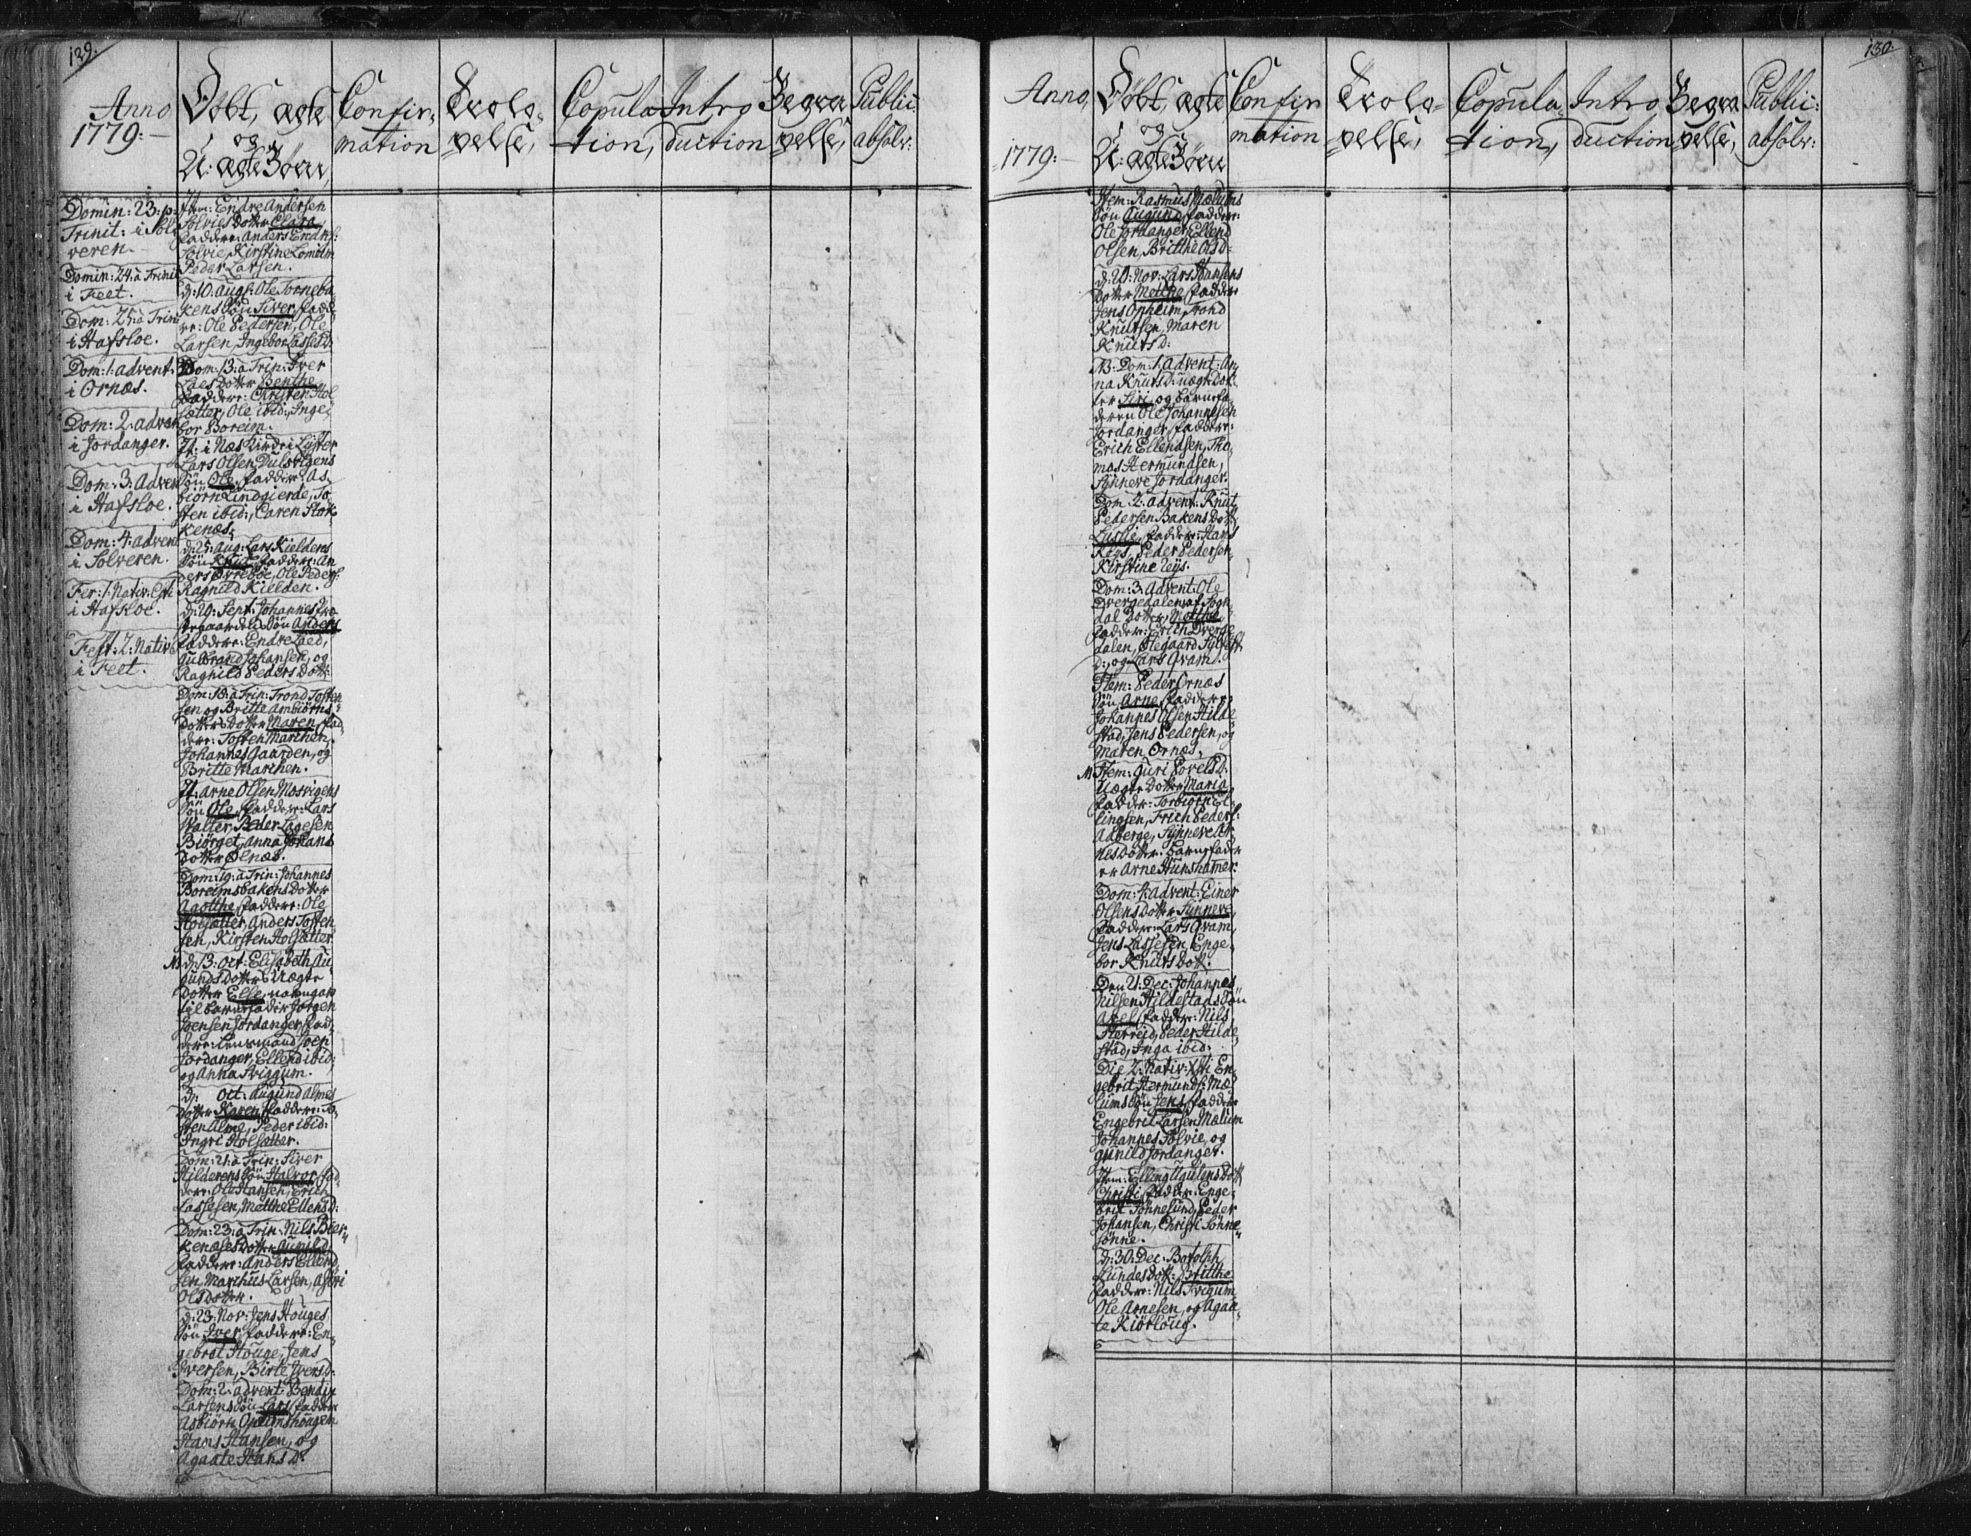 129.
Anno
1779:
Døbt, ægte
og
U: ægte Børn,
Confir,
mation
Trolo,
velse,
Copula
tion,
Intro
duction
Begra
velse,
Public:
absolv:
Domin: 23: p:
Trinit: i Sol
veren.
Domin: 24: a Trinit
i Feet.
Dom: 25: a Trini
i Hafsloe.
Dom: 1: advent
i Ornæs.
Dom: 2: advent
i Jordanger.
Dom: 3: Advent
i Hafsloe.
Dom: 4: advent
i Solveren.
Fer: 1: Nativ:
i Hafsloe.
Fest: 2: Nativ
i Feet.
Item: Endre Andersen
Solvies Dotter Clara
Faddere: Anders Endres:
Solvie, Kirstine Lomum
Peder Larsen.
d: 10: Aug: Ole Torneba
kens Søn Siver, fadde
re: Ole Pedersen, Ole
Larsen, Ingebor Lasses D:
Dom: 13: a Trin: Iver
Laes Dotter Benthe
Faddere: Christen Hol
sætter, Ole ibid:, Inge,
bor Boreim.
It: i Næs Kirke i Lyster
Lars Olsen Dulsvigens
Søn Ole, Faddere: As,
biørn Lindgierde, To,
sten ibid:, Caren Stok
kenæs.
d: 25: Aug: Lars Kieldens
Søn Knut, Faddere: An
ders Øvreboe, Ole Peders:
Ragnild Kielden.
d: 29: Sept: Johannes Præ
stegaardens Søn Anders
Faddere: Endre Laed,
Gulbrand Johansen, og
Ragnild Peders Dotter
Dom: 18: a Trin: Trond Tosten
sen og Britte Ambiørns
Dotters Dotter Maren, Fad,
dere: Tosten Marchen,
Johannes Gaarden, og
Britte Marchen.
It: Arne Olsen Mosvigens
Søn Ole, Faddere: Lars
Walter, Peder Lagesen
Biørget, Anna Johans
Dotter Ølnæs.
Dom: 19: a Trin: Johannes
Boreimsbakens Dotter
Agotthe, Faddere: Ole
Holsætter, Anders Tosten
sen, Kirsten Holsætter.
N: d: 13: Oct: Elisabeth Au
gunds Dotters Uægte
Dotter Elle,
til barnefader Jørgen
Joensen Jordanger, Fad,
dere: Lensmand Joen
Jordanger, Ellend ibid:
og Anna Sviggum.
d: Oct: Augund Almes
Dotter Karen, Faddere: To,
sten Alme, Peder ibid:
Ingri Holsætter.
Dom: 21: a Trin: Siver
Hilderens Søn Halvor, Fad,
dere: Ole Hansen, Erich
Lassesen, Metthe Ellens D:
Dom: 23: a Trin: Nils Bier,
kenæses Dotter Gunild
Faddere: Anders Ellend
sen, Marchus Larsen, Astri
Olsdotter.
d: 23: Nov: Jens Houges
Søn Iver, Faddere: En,
gebret Houge, Jens
Iversen, Birte Ivers D:
Dom: 2: advent Bendix
Larsens Søn Lars, Faddere
Asbiørn Opeimshougen
Hans Hansen, og
Agaate Hans D:
130.
Anno,
1779:
Døbt, ægte
og
U: ægte Børn
Confir
mation
Trolo,
velse,
Copula,
tion,
Intro
duction
Begra
velse,
Public:
absolv:
Item: Rasmus Mælums
Søn Augund, Faddere:
Ole Jordanger, Ellend
Olsen, Britthe Ols D:
d: 20: Nov: Lars Hansens
Dotter Metthe, Faddere
Jens Opheim, Trond
Knutsen, Maren
Knuts D:
N3: Dom: 1: Advent: An,
na Knuts D: uægte Dot,
ter Siri, og barnefa,
deren Ole Johannesen
Jordanger, Faddere:
Erich Ellendsen, Tho,
mas Hermundsen,
Synneve Jordanger.
Dom: 2: Advent: Knut
Pedersen Bakens Dott:
Lussie, Faddere: Hans
Røys, Peder Pedersen,
Kirstine Røys.
Dom: 3: Advent: Ole
Dvergedalen af Sogn
dal Dotter Metthe
Faddere: Erich Dverge
dalen, Olegaard
D:, og Lars Qvam.
Item: Peder Ornæs
Søn Arne, Faddere:
Johannes Olsen Hilde,
stad, Jens Pedersen, og
Maren Ornæs.
N: Item: Guri Povels D:
Uægte Dotter Maria,
Faddere: Torbiørn El
lingsen, Erich Peders:
Aaberge, Synneve Ar,
nes Dotter: Barnefader
er Arne Hunshamer.
Dom: 4: Advent: Einer
Olsens Dotter Synneve,
Faddere: Lars Qvam,
Jens Lassesen, Enge,
bor Knuts Dott:
Den 21: Dec: Johannes
Nilsen Hildestads Søn
Axel, Faddere: Nils
Herreid, Peder Hilde,
stad, Inga ibid:
Die 2: Nativ: Xsti En
gebrit Hermunds: Mæ
lums Søn Jens, Faddere
Engebrit Larsen Mælum
Johannes Solvie, og
Gunild Jordanger.
Item: Elling Ugulens Dott
Christi, Faddere: Enge,
brit Tønnesund, Peder
Johansen, Christi Sønne
sønne.
d: 30: Dec: Botolph
Lundes Dott: Britthe
Faddere: Nils Svigum,
Ole Arnesen, og Agaa,
te Kiørloug.